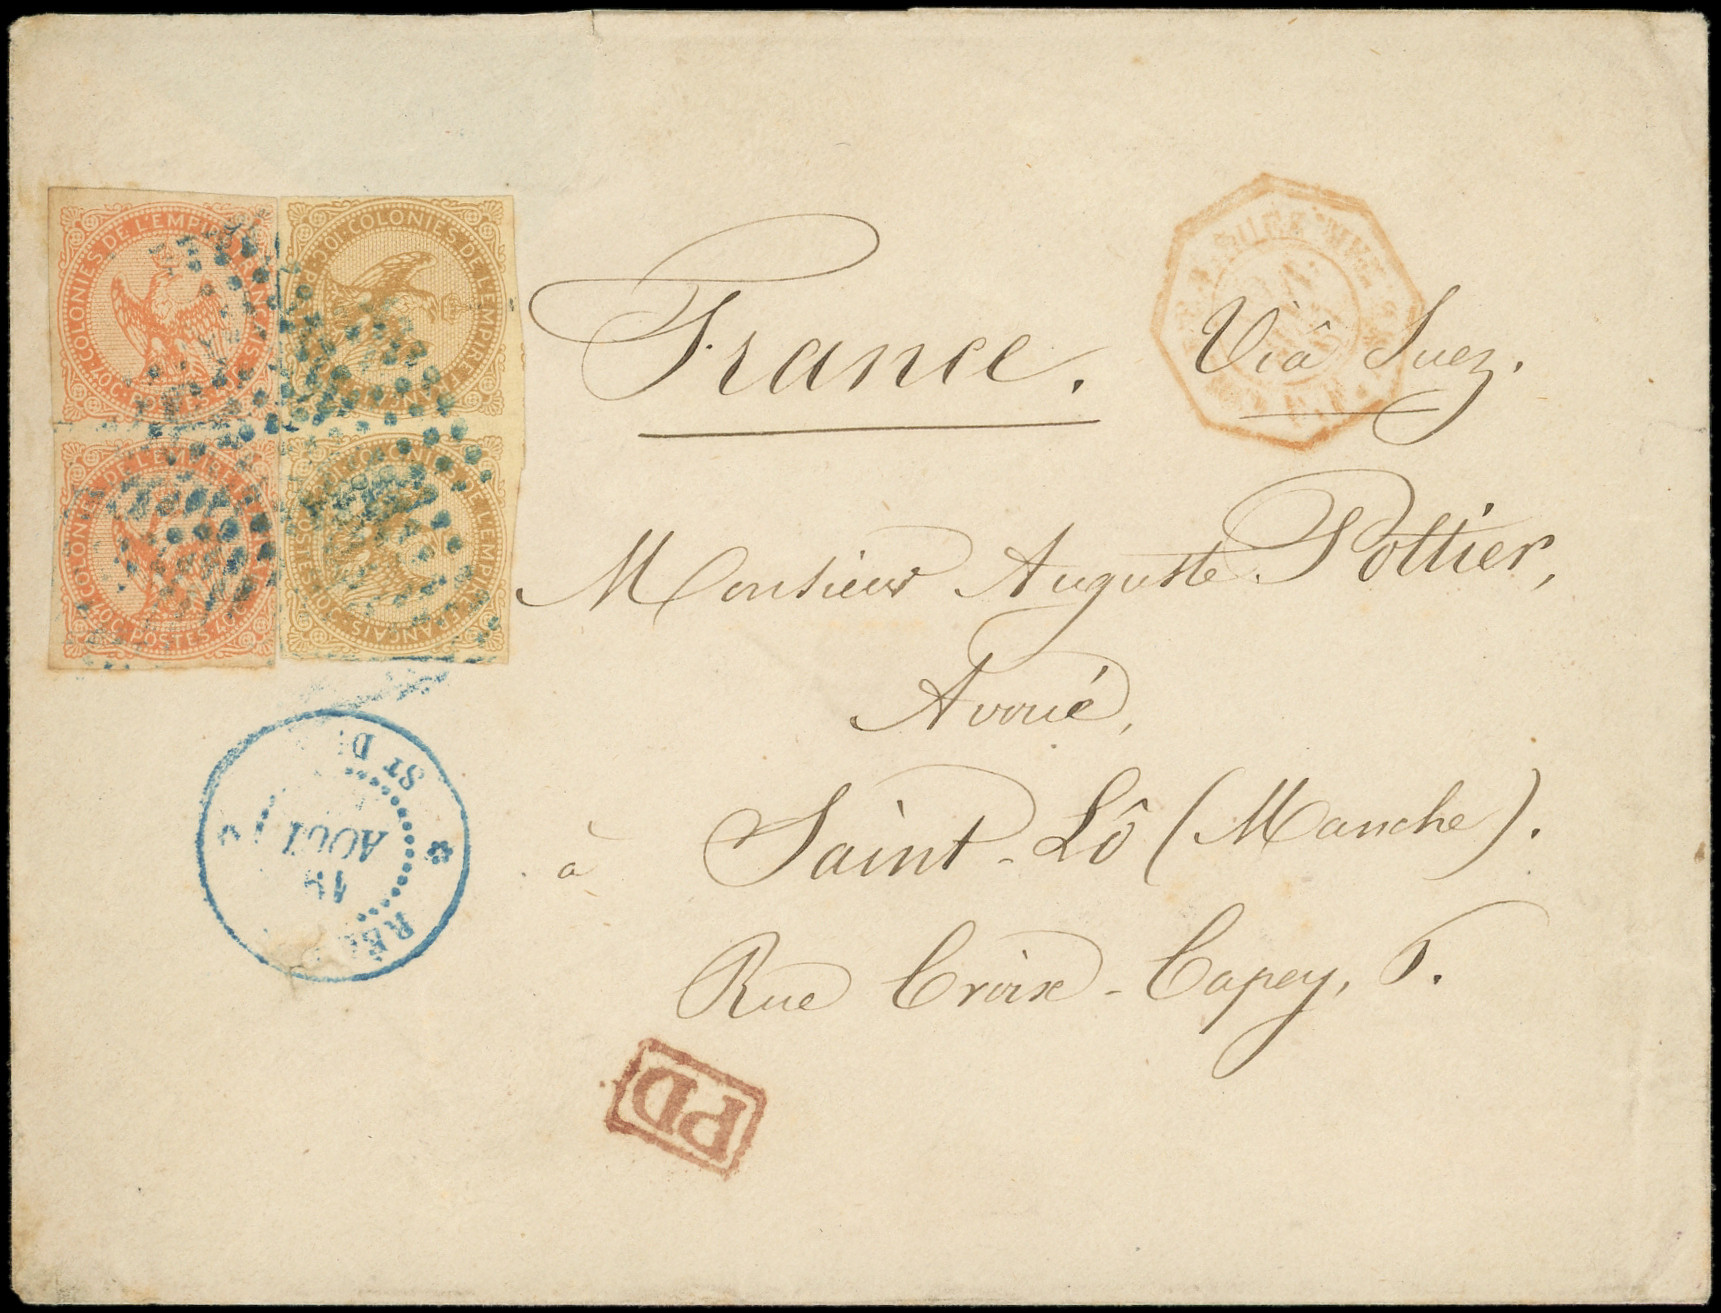 COLONIES DE L'EMPIRE FRANÇAIS · 40C · POSTES · 40C ·
COLONIES DE L'EMPIRE FRANÇAIS · 10C · POSTES · 10C ·
COLONIES DE L'EMPIRE FRANÇAIS · 40C · POSTES · 40C ·
COLONIES DE L'EMPIRE FRANÇAIS · 10C · POSTES · 10C ·
France. Viâ Suez.
Monsieur Auguste Pottier,
Avoué,
à Saint-Lô (Manche).
Rue Croix-Capey, 5.
RÉU
19
AOUT
ST D
PD